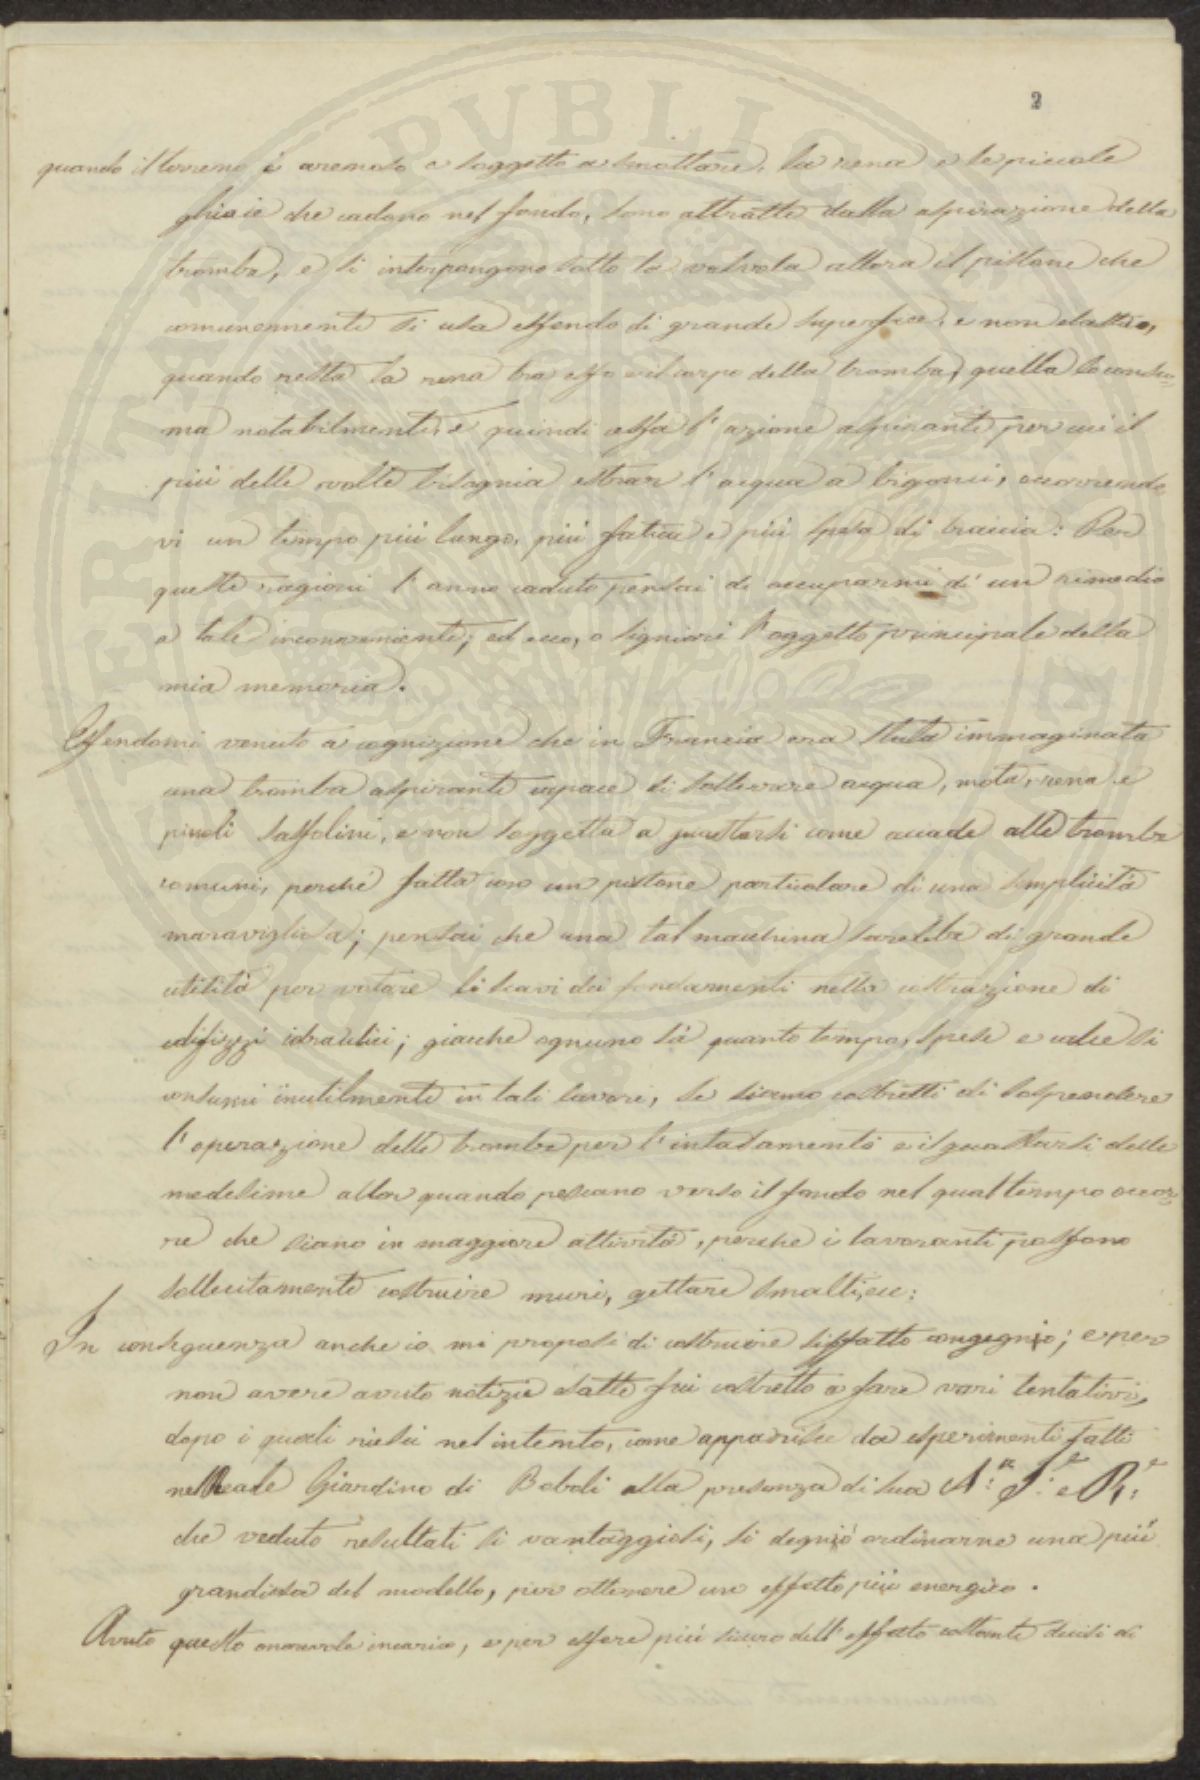 2
quando il terreno è arenoso e soggetto a smottare, la rena e le piccole
ghiaie che cadono nel fondo, sono attratte dalla aspirazione della
tromba, e si interpongono sotto la valvola allora il pistone che
comunemente si usa essendo di grande superfice, e non elastico,
quando resta la rena tra esso e il corpo della tromba, quella lo consu=
ma notabilmente, e quindi cessa l'azione aspirante per cui il
più delle volte bisognia estrar l'acqua a bigonci, occorrendo
vi un tempo più lungo, più fatica e più spesa di braccia: Per
queste ragioni l'anno caduto pensai di occuparmi di un rimedio
a tale inconveniente; ed ecco, o signiori l'oggetto principale della
mia memoria.
Essendomi venuto a cognizione che in Francia era stata immaginata
una tromba aspirante capace di sollevare acqua, mota, rena e
piccoli sassolini, e non soggetta a guastarsi come accade alle trombe
comuni, perché fatta con un pistone particolare di una semplicità
maravigliosa; pensai che una tal macchina sarebbe di grande
utilità per votare li scavi dei fondamenti nella costruzione di
edifizzi idraulici; giacche ognuno sà quanto tempo, spese e calce si
consumi inutilmente in tali lavori, se siamo costretti di sospendere
l'operazione delle trombe per l'intasamento e il guastarsi delle
medesime allor quando pescano verso il fondo nel qual tempo occor=
re che siano in maggiore attività, perche i lavoranti possono
sollecitamente costruire muri, gettare smalti, ec:
In conseguenza anche io mi proposi di costruire siffatto congegnio; e per
non avere avuto notizie esatte fui costretto a fare vari tentativi,
dopo i quali riesci nel intento, come apparisce da esperimenti fatti
nel Reale Giardino di Boboli alla presenza di sua A: I: e R:
che veduto resultati si vantaggiosi, si degniò ordinarne una più
grandiosa del modello, per ottenere un effetto più energico.
Avuto questo onorevole incarico, e per essere più sicuro dell'effetto costante decisi di